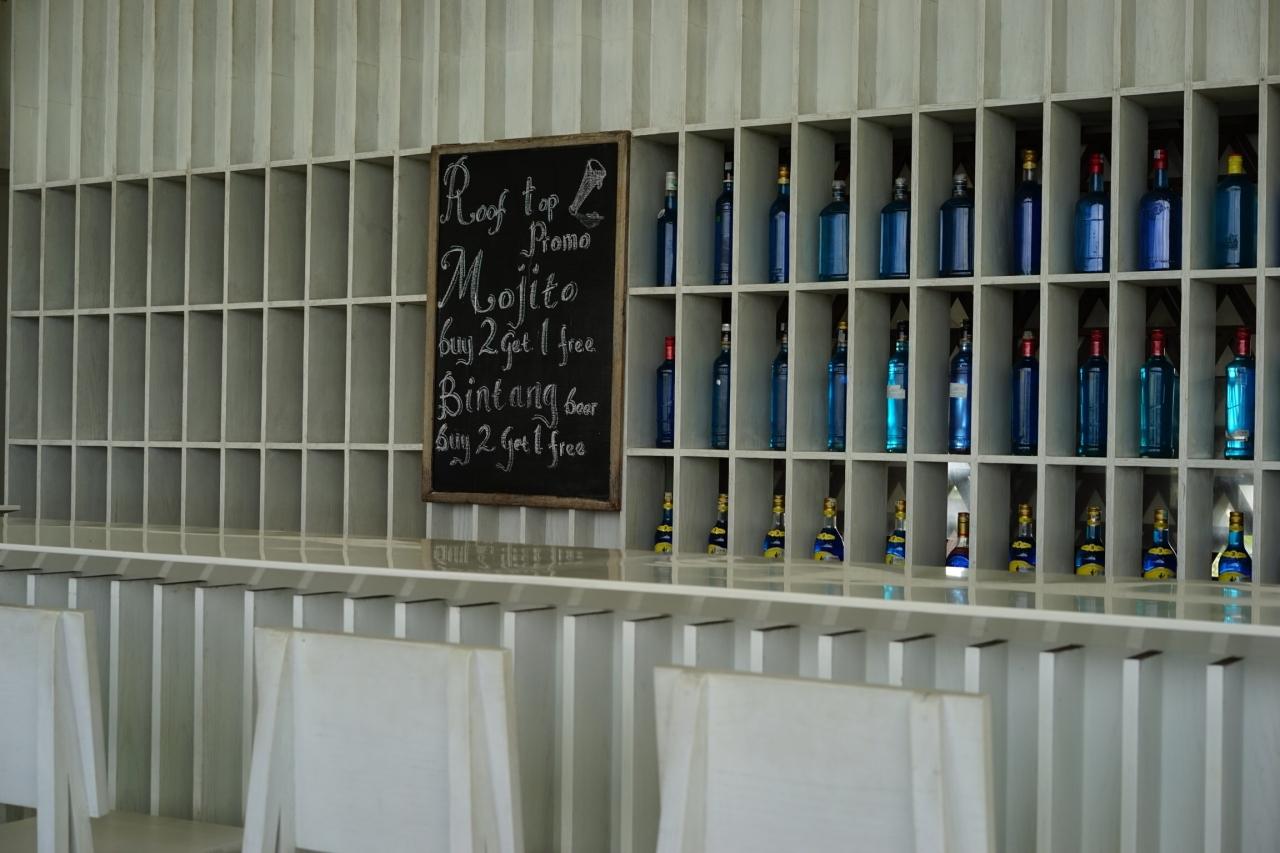 Roof top
Promo
Mojito
buy 2 get 1 free
Bintang beer
buy 2 Get 1 free